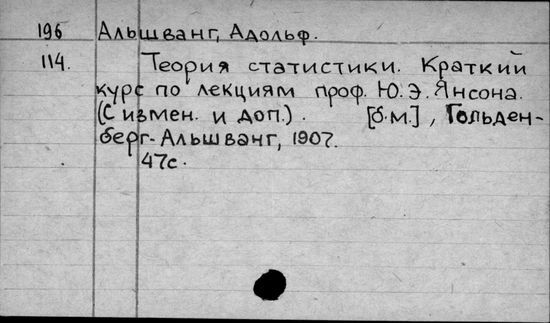 196 Альшванг, Адольф.
114. Теория статистики. Краткий
курс по лекциям проф. Ю.Э. Янсона.
(С измен. и доп.). [б.м.], Гольден-
берг-Альшванг, 1907.
47с.